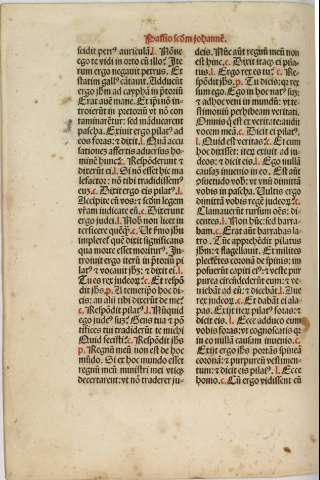 Passio scďm Johannē.
scidit petr⁹ auriculā. l. Nōne
ego te vidi in orto cū illo? c. Ite
rum ergo negauit petrus. Et
statim gall⁹ cātauit. Adducūt
ergo ihm̄ ad caypḣā in p̄toriū
Erat aūt mane. Et ip̄i nō in-
troierūt in pretoriū vt nō con
taminarētur: sed māducarent
pascḣa. Exiuit ergo pilat⁹ ad
eos foras: ⁊ dixit. l. Quā accu
sationez affertis aduersus ho-
minē hunc? c. Respōderunt ⁊
dixerūt ei. l. Si nō esset hic ma
lefactor: nō tibi tradidissem⁹
eum. c. Dixit ergo eis pilat⁹. l.
Accipite eū vos: ⁊ scďm legem
vr̄am iudicate eū. c. Dixerunt
ergo iudei. l. Nob̄ non licet in
terficere quēq̄. c. Ut ſmo ihu
impleret̄ quē dixit significans
qua morte esset moritur⁹. In-
troiuit ergo iterū in p̄toriū pi
lat⁹ ⁊ vocauit ihm̄: ⁊ dixit ei. l.
Tu es rex iudeoꝝ? c. Et respō
dit ihs̄. p. A temetip̄o hoc di-
cis: an alij tibi dixerūt de me?
c. Respōdit pilat⁹. l. Nūquid
ego iude⁹ suz? Gens tua ⁊ pō
tifices tui tradiderūt te michi
Quid fecisti? c. Respōdit ihs̄
p. Regnū meū non est de hoc
mūdo. Si ex hoc mundo esset
regnū meū ministri mei vtiqz
decertarent: vt nō traderer ju-
deis. Nūc aūt regnū meū non
est hinc. c. Dixit itaqz ei pila-
tus. l. Ergo rex es tu? c. Re-
spōdit ihs̄. p. Tu dicis: qꝛ rex
sum ego. Ego in hoc nat⁹ suz:
⁊ adhoc veni in mundū: vt te-
stimoniū perhibeam veritati.
Omnis q̄ est ex veritate: audit
vocem meā. c. Dicit ei pilat⁹.
l. Quid est veritas? c. Et cum
hoc dixisset: iteꝝ exiuit ad iu-
deos: ⁊ dicit eis. l. Ego nullā
causaz inuenio in eo. Est aūt
ꝯsuetudo vob̄: vt vnū dimittā
vobis in pascḣa. Vultis ergo
dimittā vobis regē judeoꝝ? c.
Clamauerūt rursum oēs: di-
centes. l. Non hūc: sed barra-
bam. c. Erat aūt barrabas la-
tro. Tūc apprehēdit pilatus
ihm̄: ⁊ flagellauit. Et milites
plectētes coronā de spinis: im
posuerūt capiti ei⁹: ⁊ veste pur
purea circūdederūt eum: ⁊ ve-
niebāt ad eū: ⁊ dicebāt. l. Aue
rex judeoꝝ. c. Et dabāt ei ala-
pas. Exijt iteꝝ pilat⁹ foras: ⁊
dicit eis. l. Ecce adduco eum
vobis foras: vt cognoscatis qꝛ
in eo nullā causam inuenio. c.
Exijt ergo ihs̄ portās spineā
coronā: ⁊ purpureū vestimen-
tum: ⁊ dicit eis pilat⁹. l. Ecce
homo. c. Cū ergo vidissent eū